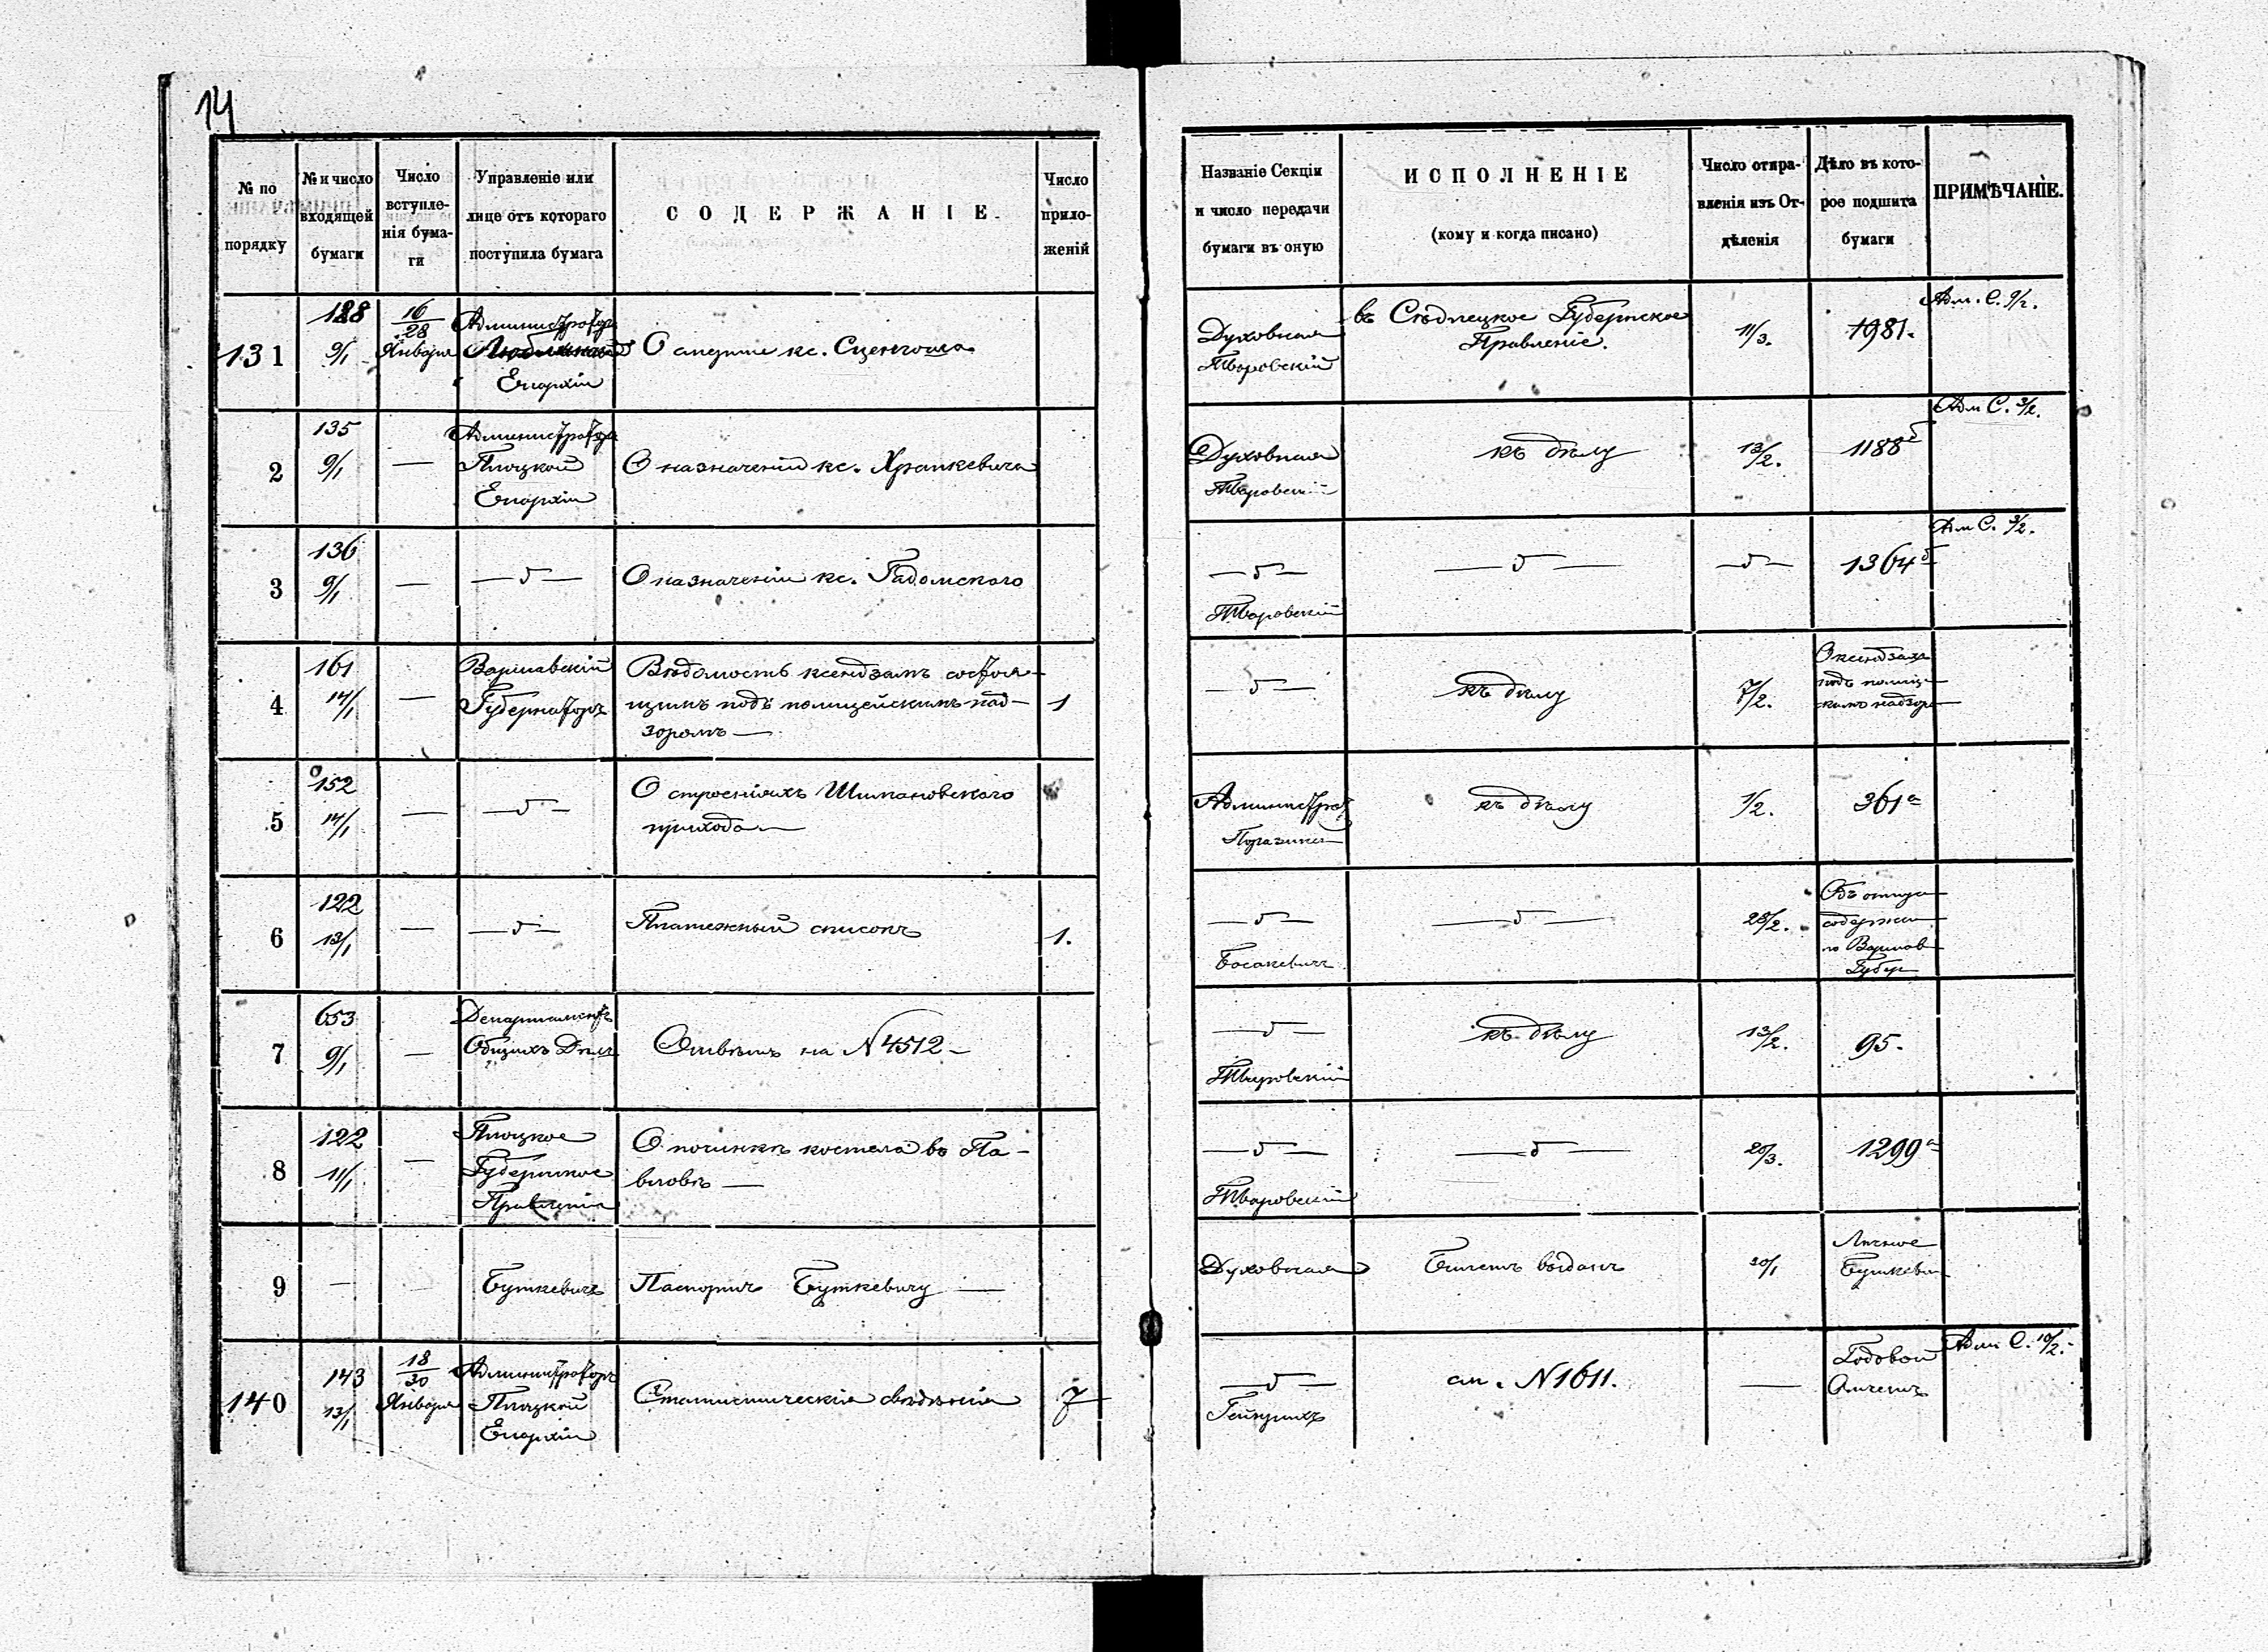 14
№ по порядку
№ и число входящей бумаги
Число вступле-нія бума-ги
Управленіе или лице отъ котораго поступила бумага
СОДЕРЖАНІЕ.
Число прило-женій
Названіе Секціи и число передачи бумаги въ оную
ИСПОЛНЕНІЕ
(кому и когда писано)
Число отпра-вленія изъ От-дѣленія
Дѣло въ кото-рое подшита бумаги
ПРИМѢЧАНІЕ.
131
128
9/1
16/28 Января
Администраторъ
Люблинской
Епархіи
О смерти кс.
Духовная
Тваровскій
въ Сѣдлецкое Губернское
Правленіе.
11/3.
1981.
Адм. С. 9/2.
2
135
9/1
—
Администраторъ
Плоцкой
Епархіи
О назначеніи кс. Хранкевича
Духовная
Тваровскій
къ дѣлу
13/2.
1188б
Адм С. 3/2.
3
136
9/1
—
—〃—
О назначеніи кс. Гадомскаго
—〃—
Тваровскій
—〃—
—〃—
1364б
Адм С. 3/2.
4
161
14/1
—
Варшавскій
Губернаторъ
Вѣдомость ксендзамъ состоя-
щимъ подъ полицейскимъ над-
зоромъ —
1
—〃—
къ дѣлу
7/2.
О ксендзахъ
подъ полиц-
скимъ надзор
5
152
14/1
—
—〃—
О строеніяхъ Шимановскаго
прихода —
Администрат
къ дѣлу
1/2.
361а
6
122
13/1
—
—〃—
Платежный списокъ
1.
—〃—
Босакевичъ
—〃—
28/2.
Объ отпуск
содержан
по Варшав
Губер
7
653
9/1
—
Департаментъ
Общихъ Дѣлъ
Отвѣтъ на N 4512 —
—〃—
Тваровскій
къ дѣлу
13/2.
95.
8
122
11/1
—
Плоцкое
Губернское
Правленіе
О починкѣ костела во Па-
вловѣ —
—〃—
Тваровскій
—〃—
20/3.
1299а
9
—
—
Буткевичъ
Паспортъ Буткевичу —
Духовная
Билетъ выданъ
20/1
Личное
Буткевич
140
143
13/1
18/30 Января
Администраторъ
Плоцкой
Епархіи
Статистическія свѣдѣнія
7
—〃—
Гейнрихъ
см. N 1611.
—
Годовой
Отчетъ
Адм С. 10/2.